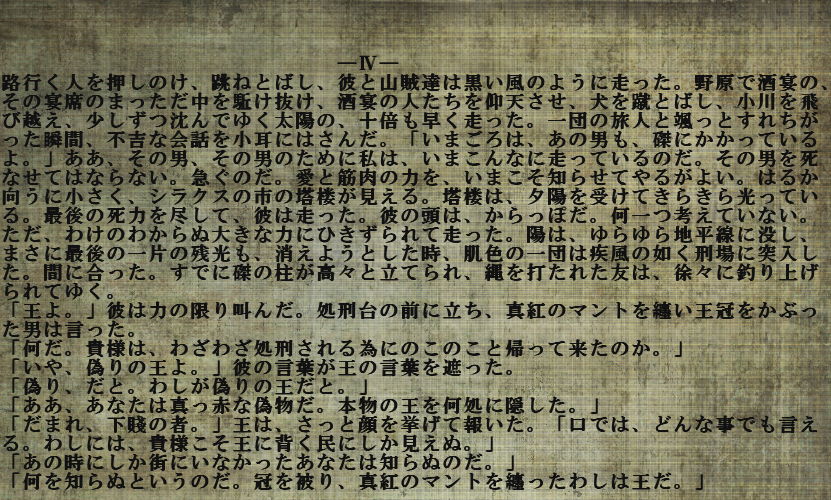 ―Ⅳ―
路行く人を押しのけ、跳ねとばし、彼と山賊達は黒い風のように走った。野原で酒宴の、
その宴席のまっただ中を駈け抜け、酒宴の人たちを仰天させ、犬を蹴とばし、小川を飛
び越え、少しずつ沈んでゆく太陽の、十倍も早く走った。一団の旅人と颯っとすれちが
った瞬間、不吉な会話を小耳にはさんだ。「いまごろは、あの男も、磔にかかっている
よ。」ああ、その男、その男のために私は、いまこんなに走っているのだ。その男を死
なせてはならない。急ぐのだ。愛と筋肉の力を、いまこそ知らせてやるがよい。はるか
向うに小さく、シラクスの市の塔楼が見える。塔楼は、夕陽を受けてきらきら光ってい
る。最後の死力を尽して、彼は走った。彼の頭は、からっぽだ。何一つ考えていない。
ただ、わけのわからぬ大きな力にひきずられて走った。陽は、ゆらゆら地平線に没し、
まさに最後の一片の残光も、消えようとした時、肌色の一団は疾風の如く刑場に突入し
た。間に合った。すでに磔の柱が高々と立てられ、縄を打たれた友は、徐々に釣り上げ
られてゆく。
「王よ。」彼は力の限り叫んだ。処刑台の前に立ち、真紅のマントを纏い王冠をかぶっ
た男は言った。
「何だ。貴様は、わざわざ処刑される為にのこのこと帰って来たのか。」
「いや、偽りの王よ。」彼の言葉が王の言葉を遮った。
「偽り、だと。わしが偽りの王だと。」
「ああ、あなたは真っ赤な偽物だ。本物の王を何処に隠した。」
「だまれ、下賤の者。」王は、さっと顔を挙げて報いた。「口では、どんな事でも言え
る。わしには、貴様こそ王に背く民にしか見えぬ。」
「あの時にしか街にいなかったあなたは知らぬのだ。」
「何を知らぬというのだ。冠を被り、真紅のマントを纏ったわしは王だ。」